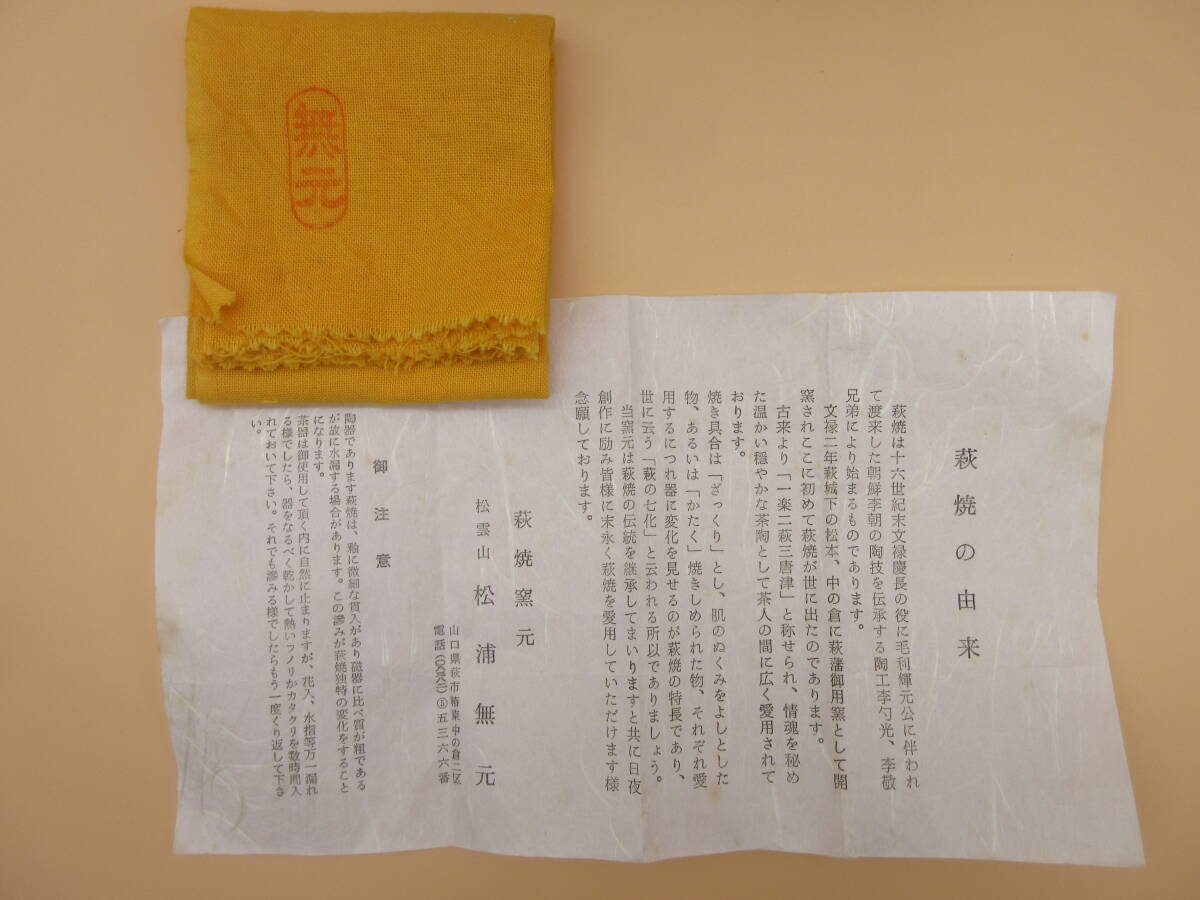 無元
萩焼の由来
萩焼は十六世紀末文禄慶長の役に毛利輝元公に伴われ
て渡来した朝鮮李朝の陶技を伝承する陶工李勺光、李敬
兄弟により始まるものであります。
文禄二年萩城下の松本、中の倉に萩藩御用窯として開
窯されここに初めて萩焼が世に出たのであります。
古来より「一楽二萩三唐津」と称せられ、情魂を秘め
た温かい穏やかな茶陶として茶人の間に広く愛用されて
おります。
焼き具合は「ざっくり」とし、肌のぬくみをよしとした
物、あるいは「かたく」焼きしめられた物、それぞれ愛
用するにつれ器に変化を見せるのが萩焼の特長であり、
世に云う「萩の七化」と云われる所以でありましょう。
当窯元は萩焼の伝統を継承してまいりますと共に日夜
創作に励み皆様に末永く萩焼を愛用していただけます様
念願しております。
萩焼窯元
松雲山 松浦無元
山口県萩市椿東中の倉二区
電話(〇八三八二)⑤五三六六番
御注意
陶器であります萩焼は、釉に微細な貫入があり磁器に比べ質が粗である
が故に水漏する場合があります。この滲みが萩焼独特の変化をすること
になります。
茶器は御使用して頂く内に自然に止まりますが、花入、水指等万一漏れ
る様でしたら、器をなるべく乾かして熱いフノリかカタクリを数時間入
れておいて下さい。それでも滲みる様でしたらもう一度くり返して下さ
い。